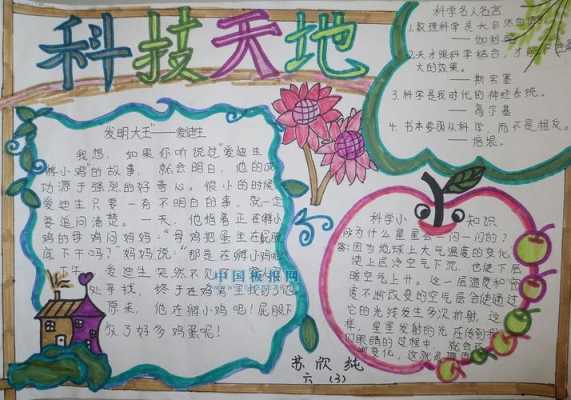 科技天地
科学名人名言
1.数理科学是大自然
——伽利略
2.天才跟科学结合,才能
大的效果。
——斯宾塞
3.科学是我时代的神经系统。
——高尔基
4.书本要跟从科学,而不是相反。
——培根。
发明大王"——爱迪生
我想,如果你听说过"爱迪生
孵小鸡"的故事,就会明白,他的成
功源于强烈的好奇心。很小的时候
爱迪生只要一有不明白的事,就一定
要追问清楚。一天,他指着正在孵小
鸡的母鸡问妈妈:"母鸡把蛋坐在屁股
底下干吗?"妈妈说:"那是在孵小鸡呢
下午,爱迪生突然不见了
处寻找,终于在鸡窝里找到了他
原来,他在孵小鸡吧!屁股下
放了好多鸡蛋呢!
中国板报网
科学小知识
为什么星星会一闪一闪的?
答:因为地球上大气温度的变化,
使上层冷空气下沉,也使下层
暖空气上升。这一层温度和密
度不断改变的空气层会使通过
它的光线发生多次折射,这
样,星星发射的光在传到
们眼睛的过程中,就会
变化,这就
苏欣纯
六(3)